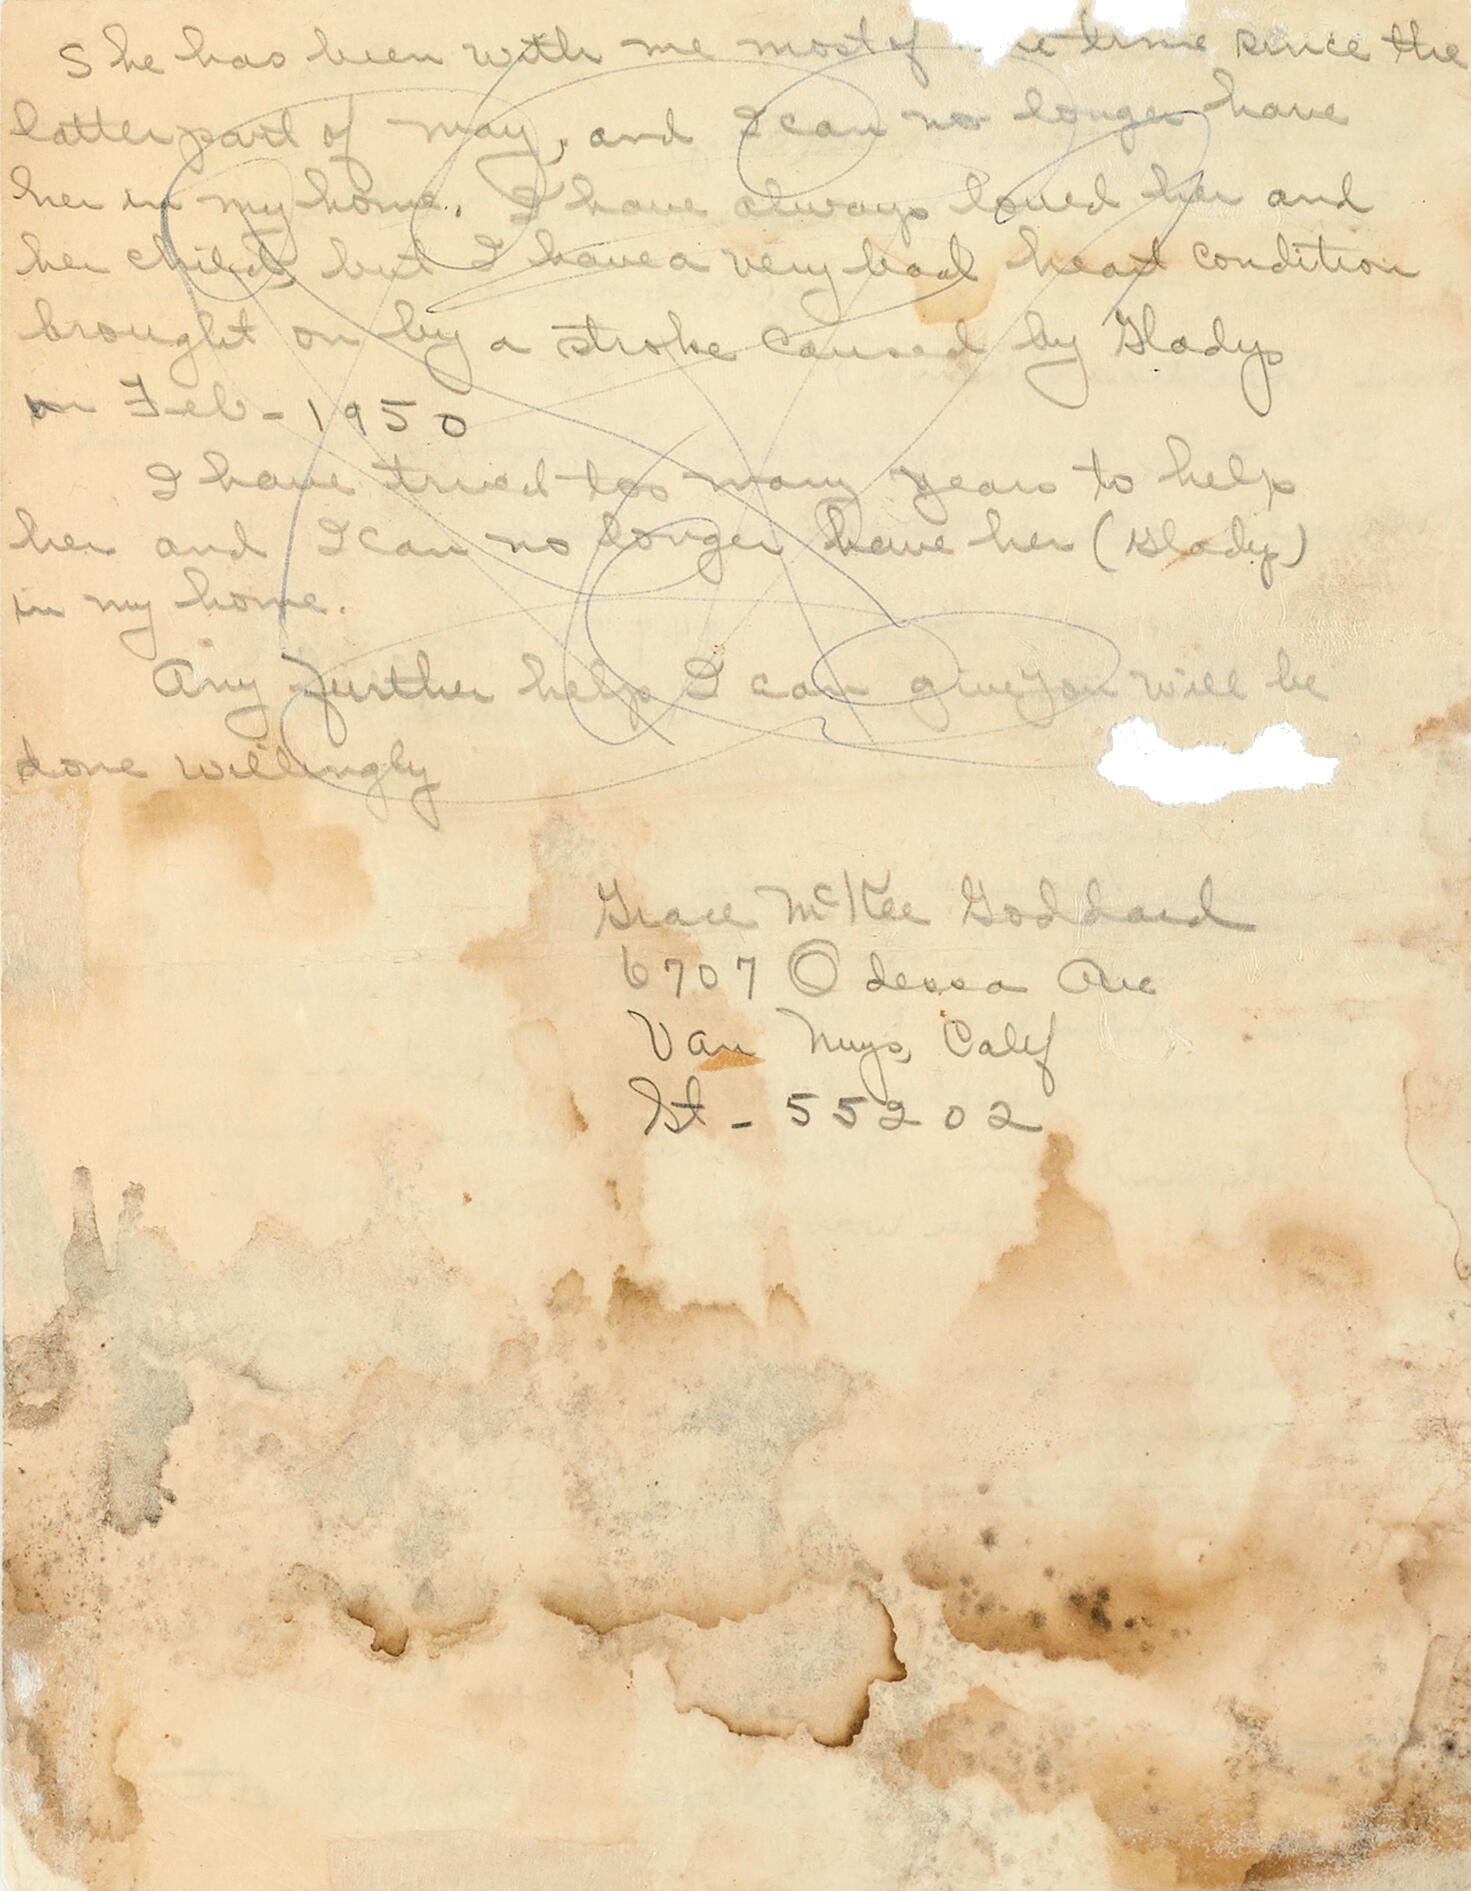 She has been with me most of time since the
latter part of may, and I can no longer have
her in my home. I have always loved her and
her child but I have a very bad heart condition
brought on by a stroke caused by Gladys
in Feb - 1950
I have tried too many years to help
her and I can no longer have her (Gladys)
in my home.
Any further help I can give you will be
done willingly
Grace McKee Goddard
6707 Odessa Ave
Van Nuys, Calif
St - 55202